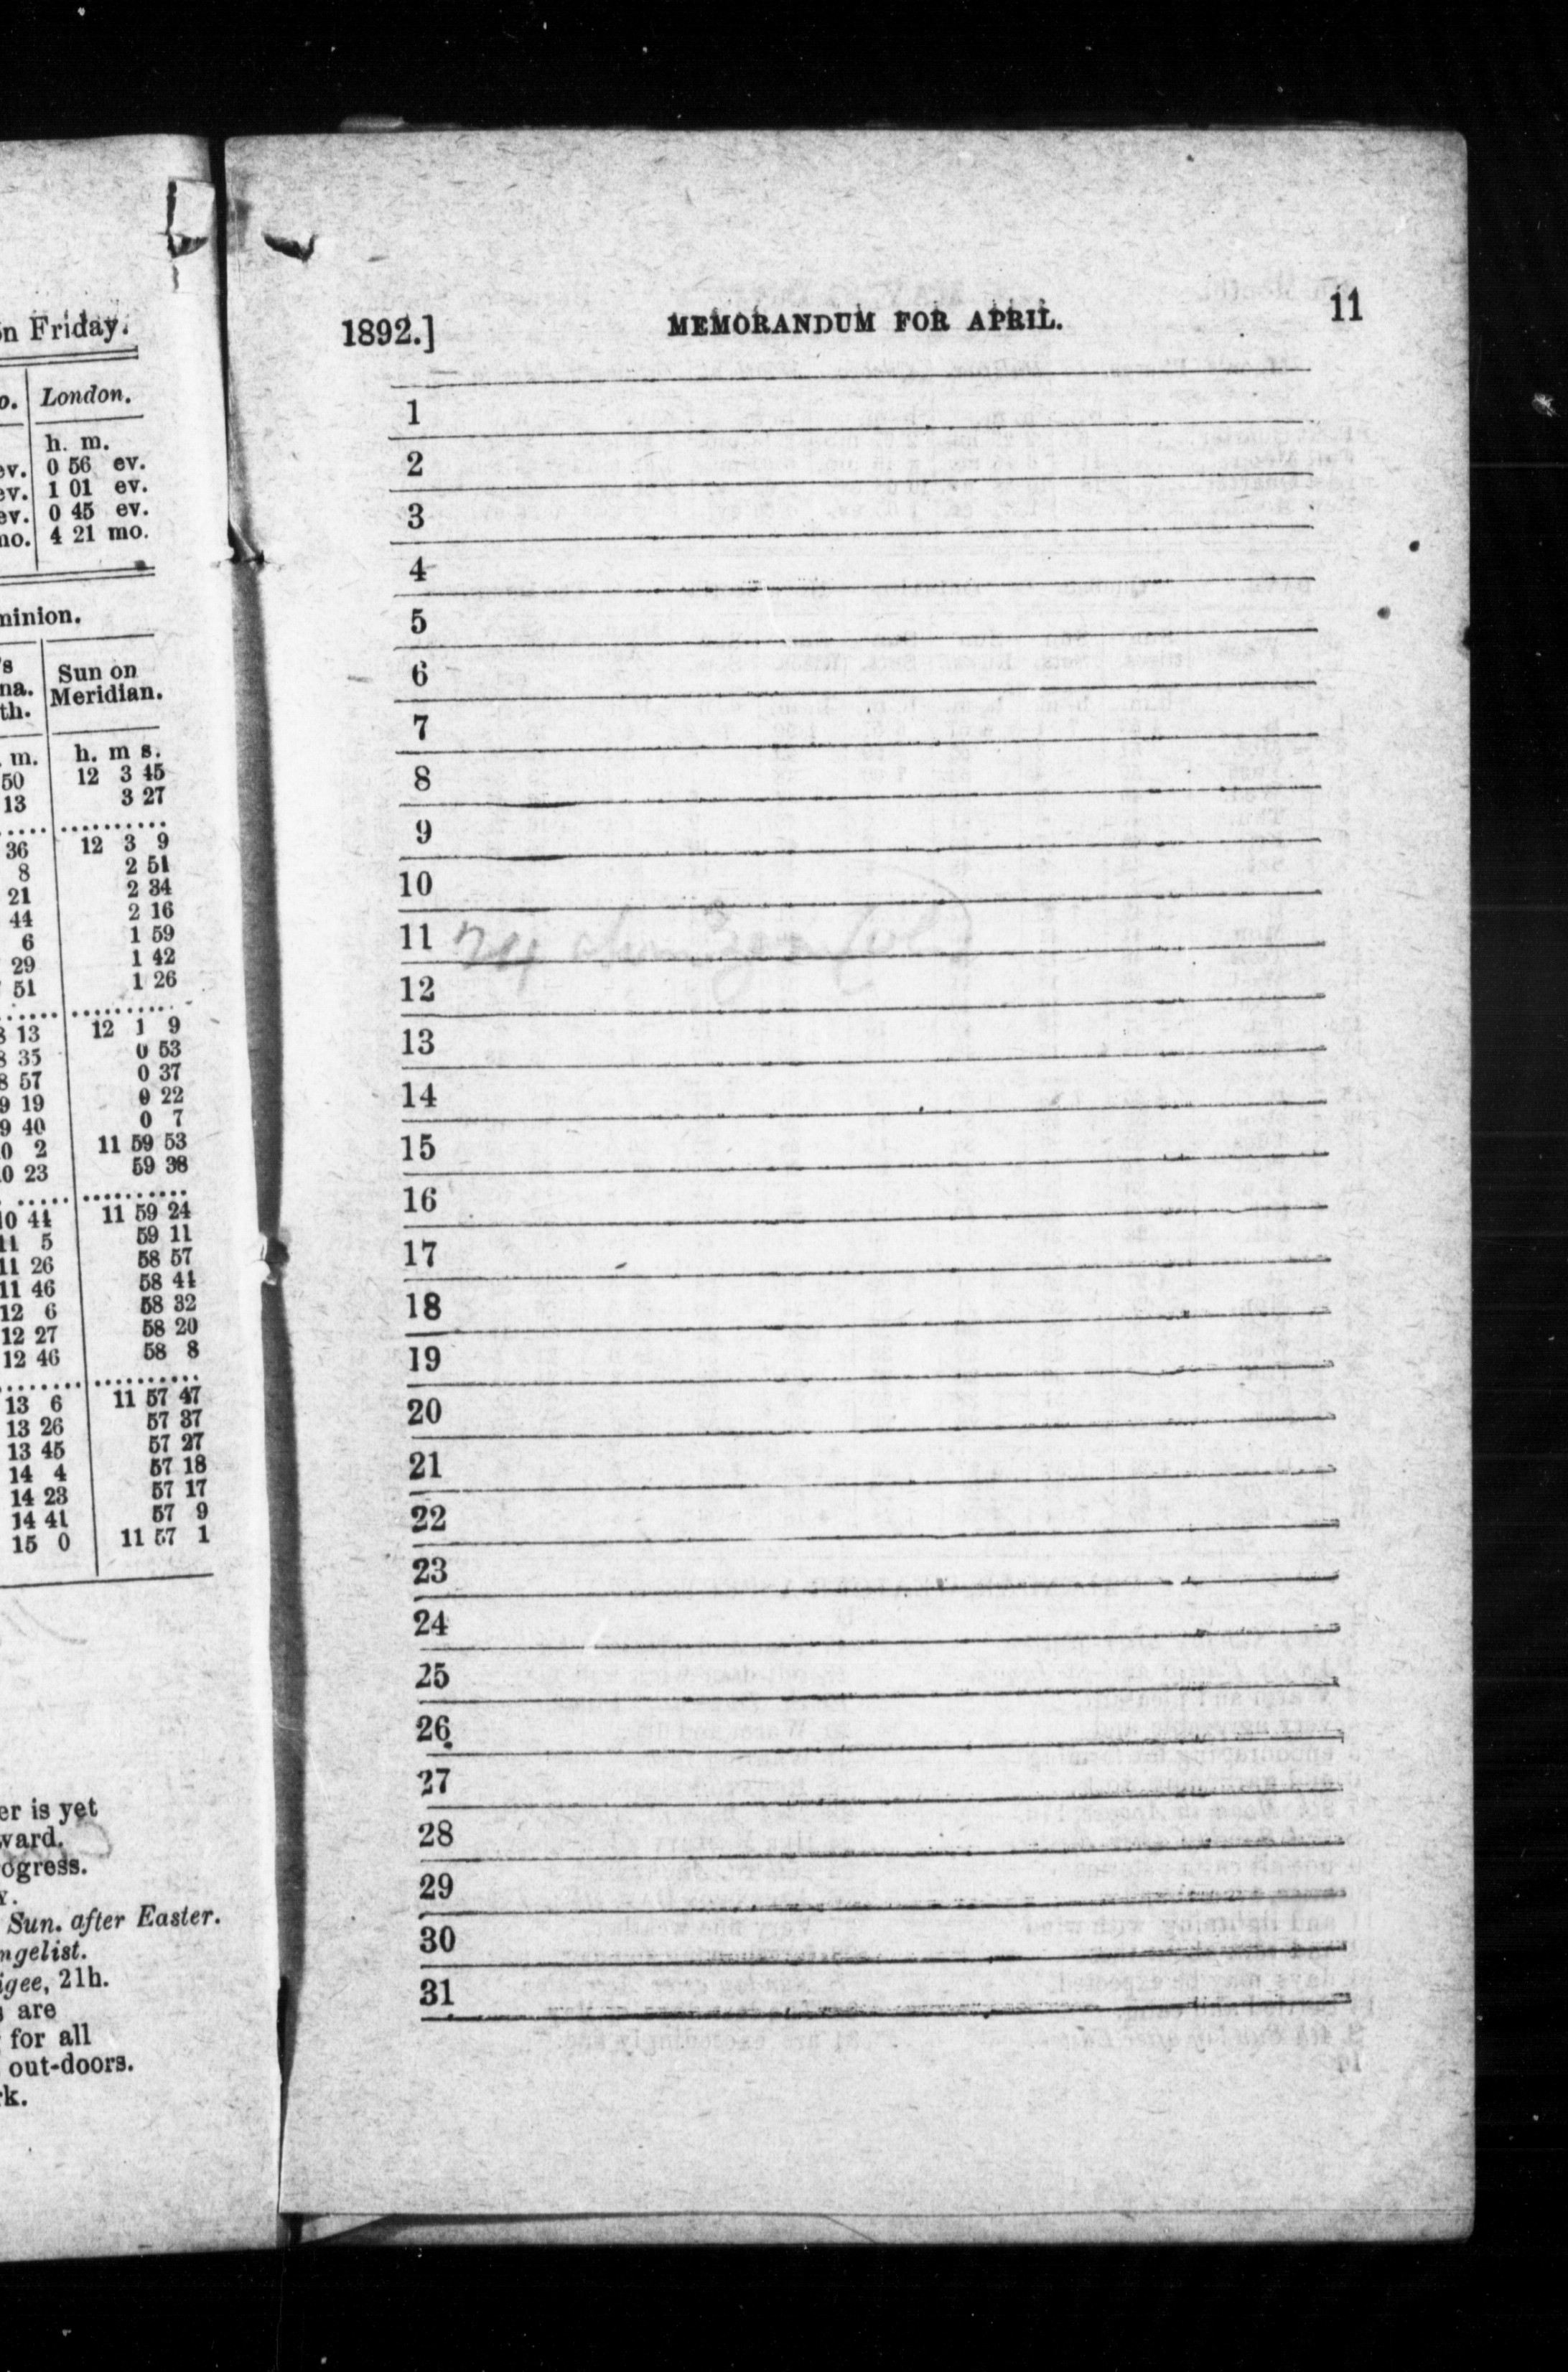 n Friday.
o. London.
h. m.
ev. 0 56 ev.
ev. 1 01 ev.
ev. 0 45 ev.
mo. 4 21 mo.
minion.
's
na.
th.
Sun on
Meridian.
m. h. m s.
50 12 3 45
13 3 27
36 12 3 9
8 2 51
21 2 34
44 2 16
6 1 59
29 1 42
51 1 26
8 13 12 1 9
8 35 0 53
8 57 0 37
9 19 0 22
9 40 0 7
0 2 11 59 53
0 23 59 38
10 44 11 59 24
11 5 59 11
11 26 58 57
11 46 58 44
12 6 58 32
12 27 58 20
12 46 58 8
13 6 11 57 47
13 26 57 37
13 45 57 27
14 4 57 18
14 23 57 17
14 41 57 9
15 0 11 57 1
er is yet
ward.
ogress.
Y.
Sun. after Easter.
ngelist.
igee, 21h.
s are
for all
out-doors.
rk.
1892.] MEMORANDUM FOR APRIL. 11
1
2
3
4
5
6
7
8
9
10
11 24
12
13
14
15
16
17
18
19
20
21
22
23
24
25
26
27
28
29
30
31